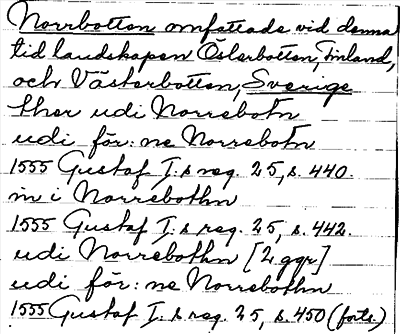 Norrbotten omfattade vid denna
tid landskapen Österbotten, Finland,
och Västerbotten, Sverige
ther udi Norrebotn
udi för: ne Norrebotn
1555 Gustaf I:s reg. 25, s. 440.
in i Norrebothn
1555 Gustaf I:s reg. 25, s. 442.
udi Norrebothn [2 ggr]
udi för: ne Norrebothn
1555 Gustaf I:s reg. 25, s. 450 (forts.)